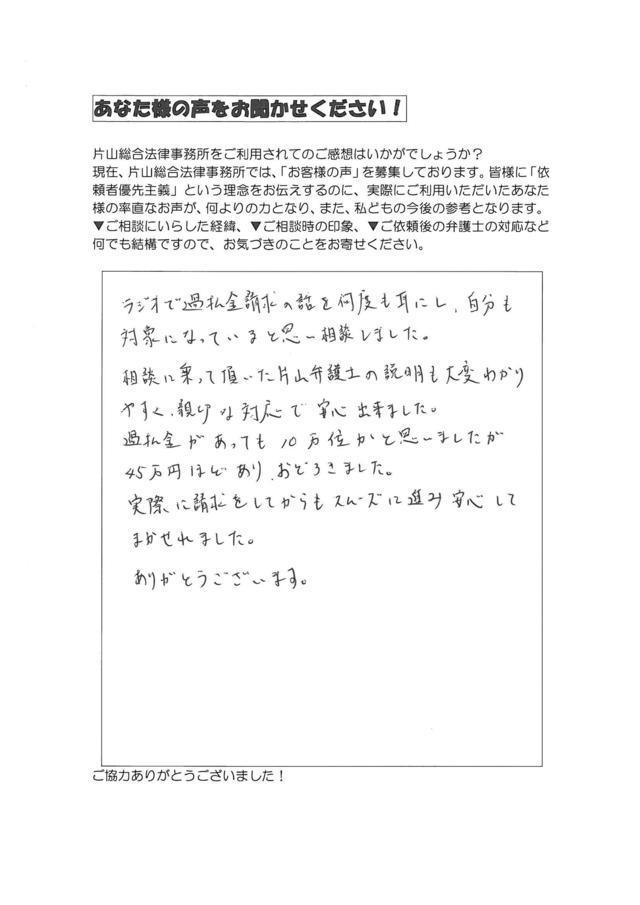 あなた様の声をお聞かせください！
片山総合法律事務所をご利用されてのご感想はいかがでしょうか？
現在、片山総合法律事務所では、「お客様の声」を募集しております。皆様に「依
頼者優先主義」という理念をお伝えするのに、実際にご利用いただいたあなた
様の率直なお声が、何よりの力となり、また、私どもの今後の参考となります。
▼ご相談にいらした経緯、▼ご相談時の印象、▼ご依頼後の弁護士の対応など
何でも結構ですので、お気づきのことをお寄せください。
ラジオで過払金請求の話を何度も耳にし、自分も
対象になっていると思い相談しました。
相談に乗って頂いた片山弁護士の説明も大変わかり
やすく、親切な対応で安心出来ました。
過払金があっても10万位かと思いましたが
45万円ほどあり、おどろきました。
実際に請求をしてからもスムーズに進み安心して
まかせれました。
ありがとうございます。
ご協力ありがとうございました！